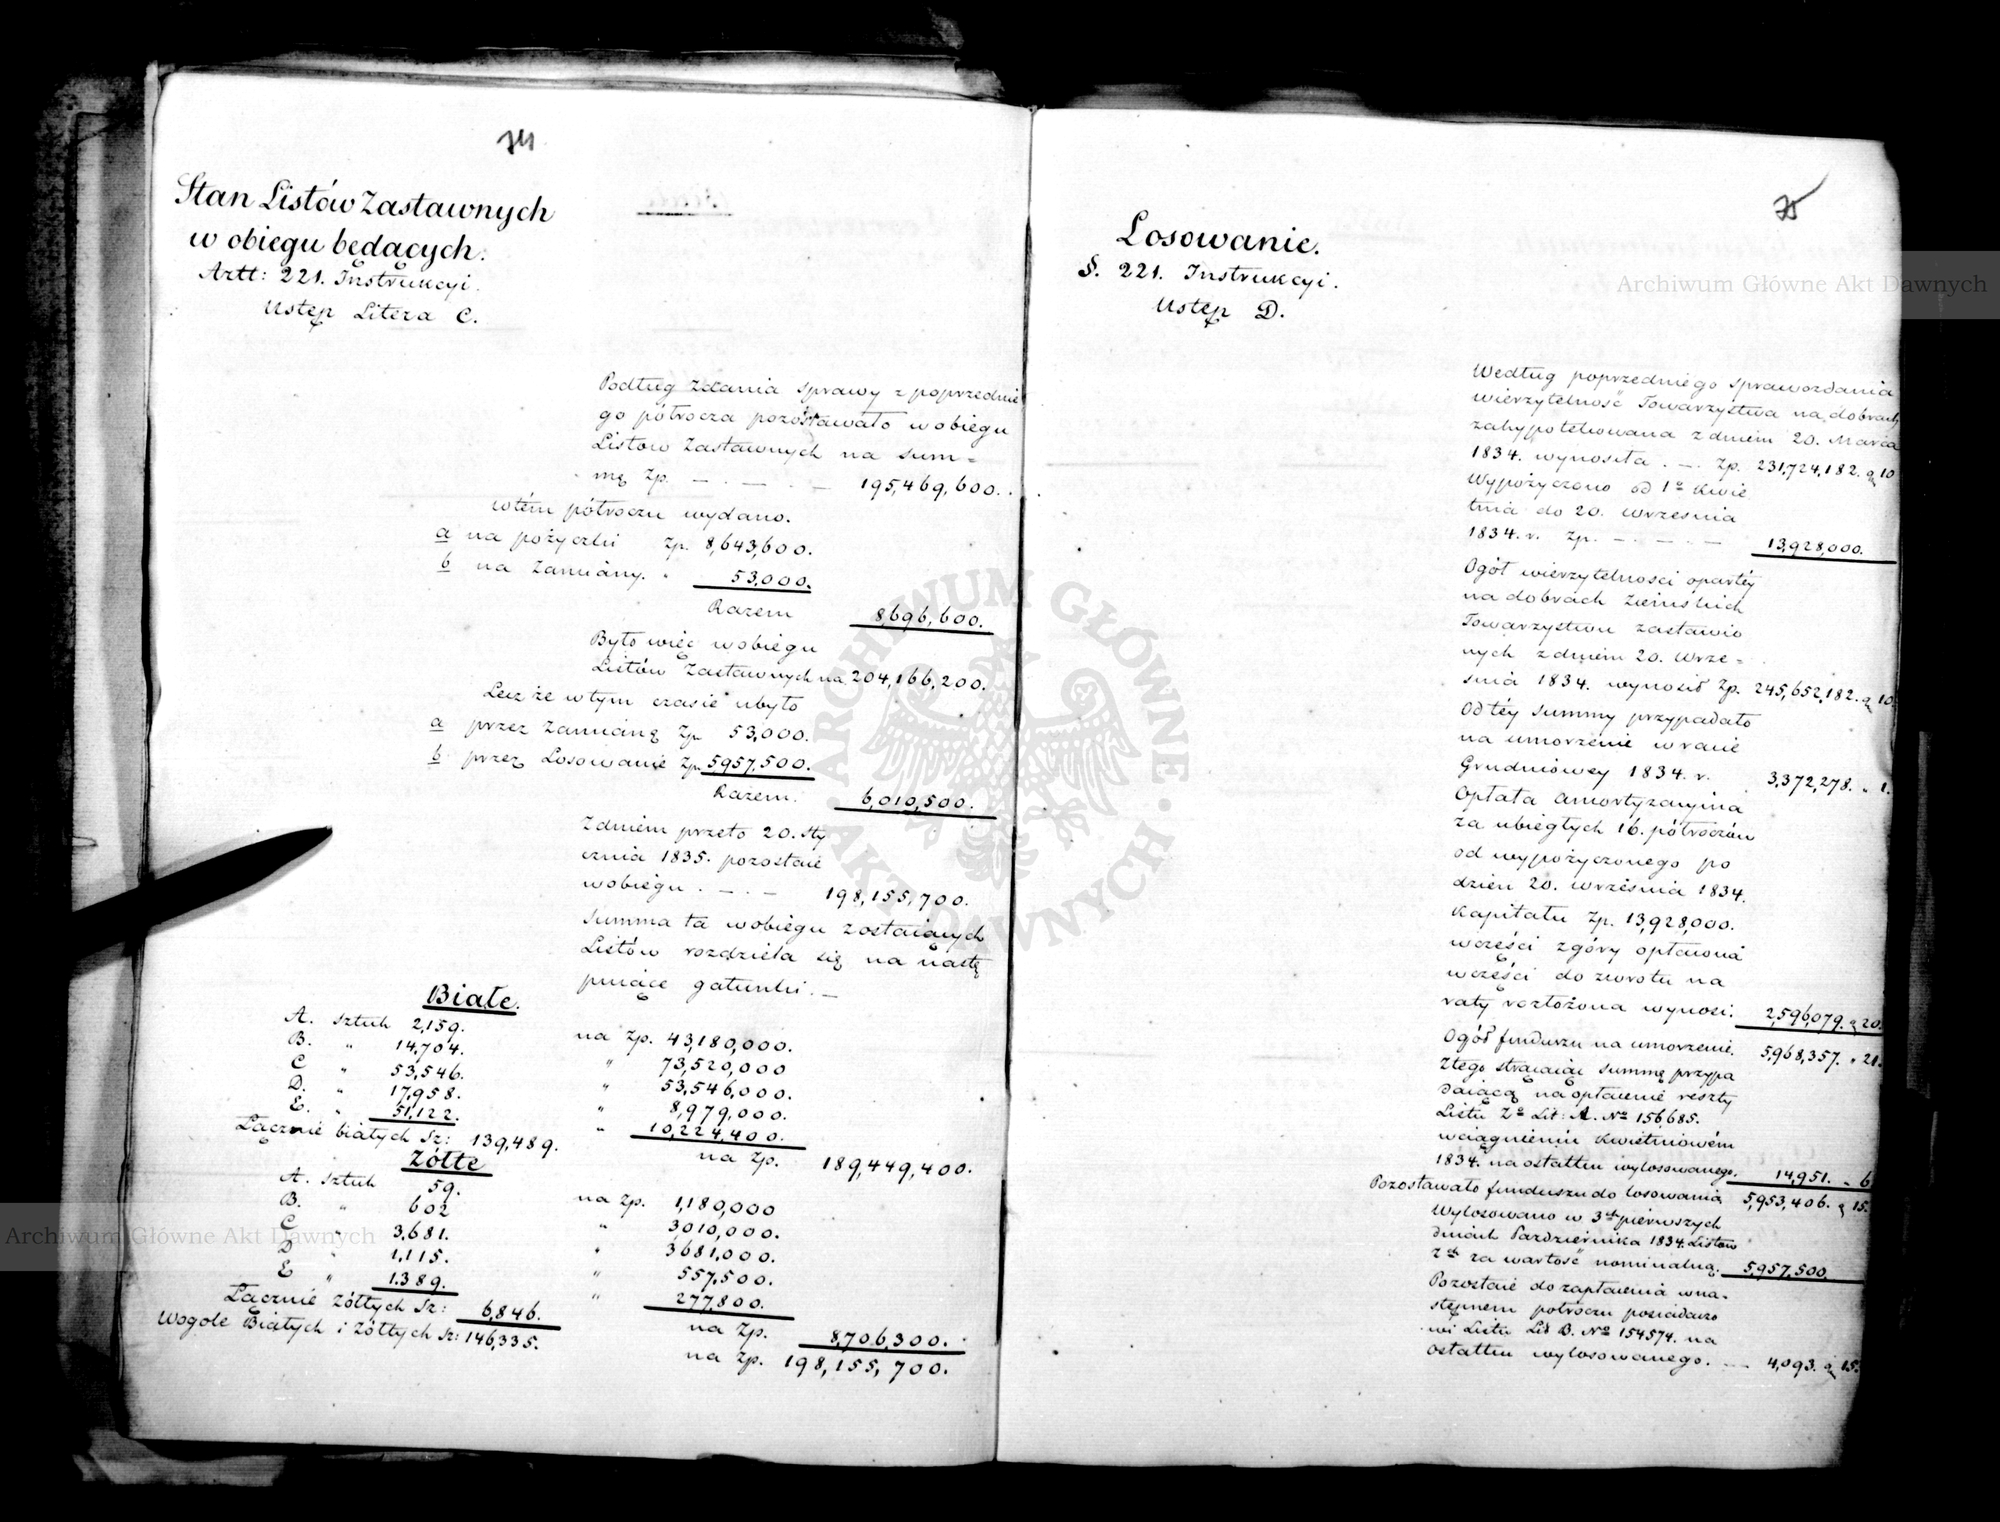 74
Stan Listów Zastawnych
w obiegu będących.
Artt: 221. Instrukcyi.
Ustęp Litera C.
Podług zdania sprawy z poprzednie
go półrocza pozostawało w obiegu
Listów Zastawnych na sum=
mę Zp. — . — . — 195,469,600.
w tém półroczu wydano.
a na pożyczki Zp. 8,643,600.
b na zamiány. " 53,000.
Razem 8,696,600.
Było więc w obiegu
Listów Zastawnych na 204,166,200.
Lecz że w tym czasie ubyło
a przez zamiánę Zp. 53,000.
b przez Losowanie Zp. 5957,500.
Razem. 6,010,500.
Z dniem przeto 20. Sty
cznia 1835. pozostaie
w obiegu . — . — 198,155,700.
Summa ta w obiegu zostaiących
Listów rozdziela się na nastę
puiące gatunki. —
Białe.
A. sztuk 2,159. na Zp. 43,180,000.
B. " 14,704. " 73,520,000
C " 53,546. " 53,546,000.
D. " 17,958. " 8,979,000.
E. " 51,122. " 10,224,400.
Łącznie białych Sz: 139,489. na Zp. 189,449,400.
Żółte
A. sztuk 59. na Zp. 1,180,000
B. " 602 " 3,010,000.
C " 3,681. " 3681,000.
D " 1,115. " 557,500.
E " 1.389. " 277,800.
Łącznie Żółtych Sz: 6,846. na Zp. 8,706,300.
Wogole Białych i Żółtych Sz: 146,335. na Zp. 198,155,700.
75
Losowanie.
§. 221. Instrukcyi.
Ustęp D.
Według poprzedniego sprawozdania
wierzytelność Towarzystwa na dobrach
zahypotekowana z dniem 20. Marca
1834. wynosiła . — . Zp. 231,724,182. g 10
Wypożyczono od 1o Kwie
tnia do 20. Września
1834. r. Zp. — . — . — . — 13,928,000.
Ogół wierzytelnosci opartéy
na dobrach Ziemskich
Towarzystwu zastawio
nych z dniem 20. Wrze=
snia 1834. wynosił Zp. 245,652,182. g 10
Od téy summy przypadało
na umorzenie w racie
Grudniowey 1834. r. 3,372,278. " 1.
Opłata amortyzacyina
za ubiegłych 16. półroczów
od wypożyczonego po
dzień 20. Września 1834.
Kapitału Zp. 13,928,000.
w części z góry opłacona
w części do zwrotu na
raty rozłożona wynosi. 2,596,079. g 20.
Ogół funduszu na umorzenie. 5,968,357. " 21.
Z tego strąciaiąc summę przypa
daiącą na opłacenie reszty
Listu Zo Lit: A. No 156685.
w ciągnieniu Kwietniowém
1834. na ostatku wylosowanego. 14,951. " 6
Pozostawało funduszu do losowania 5,953,406. g 15.
Wylosowano w 3ch pierwszych
dniach Października 1834. Listów
Zch za wartość nominalną. 5,957,500.
Pozostaie do zapłacenia w na-
stępnem półroczu posiadaczo
wi Listu Lit B. No 154574. na
ostatku wylosowanego. — 4,093. g 15.
ARCHIWUM GŁÓWNE AKT DAWNYCH
Archiwum Główne Akt Dawnych
Archiwum Główne Akt Dawnych